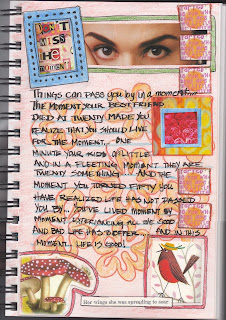 DON'T
MISS
THE
MOMENT
THINGS CAN PASS YOU BY IN A moment...
THE MOMENT YOUR BEST FRIEND
DIED AT TWENTY MADE YOU
REALIZE THAT YOU SHOULD LIVE
FOR THE MOMENT... ONE
MINUTE YOUR KIDS R LITTLE
AND IN A FLEETING MOMENT THEY ARE
TWENTY SOMETHING... AND THE
MOMENT YOU TURNED FIFTY YOU
HAVE REALIZED LIFE HAS NOT PASSED
YOU BY... YOU'VE LIVED MOMENT BY
MOMENT EXPERIANCING ALL THE GOOD
AND BAD LIFE HAS TO OFFER... AND IN THIS
MOMENT... LIFE IS GOOD.
Her wings she was spreading to soar